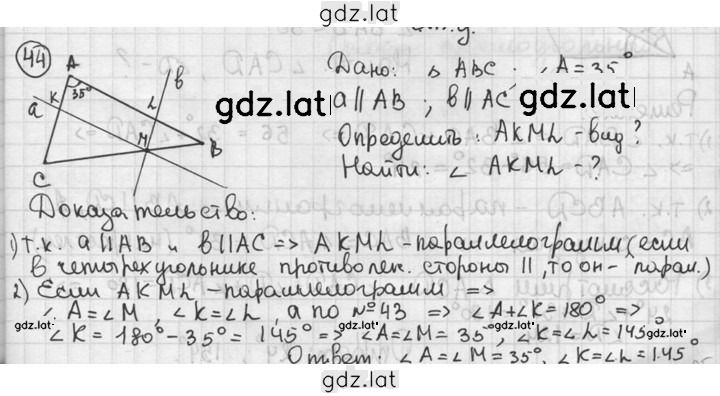 gdz.lat
44
A
в
35°
K
L
a
M
B
C
Дано: △ ABC. ∠A = 35°
gdz.lat gdz.lat
a || AB ; в || AC
Определить: AKML - вид?
Найти: ∠ AKML - ?
Доказательство:
1) т.к. a || AB и в || AC => AKML - параллелограмм (если
в четырехугольнике противолеж. стороны ||, то он - парал.)
2) Если AKML - параллелограмм =>
gdz.lat gdz.lat gdz.lat gdz.lat
∠A = ∠M, ∠K = ∠L, а по №43 => ∠A + ∠K = 180° =>
∠K = 180° - 35° = 145° => ∠A = ∠M = 35°, ∠K = ∠L = 145°
Ответ: ∠A = ∠M = 35°, ∠K = ∠L = 145°
gdz.lat